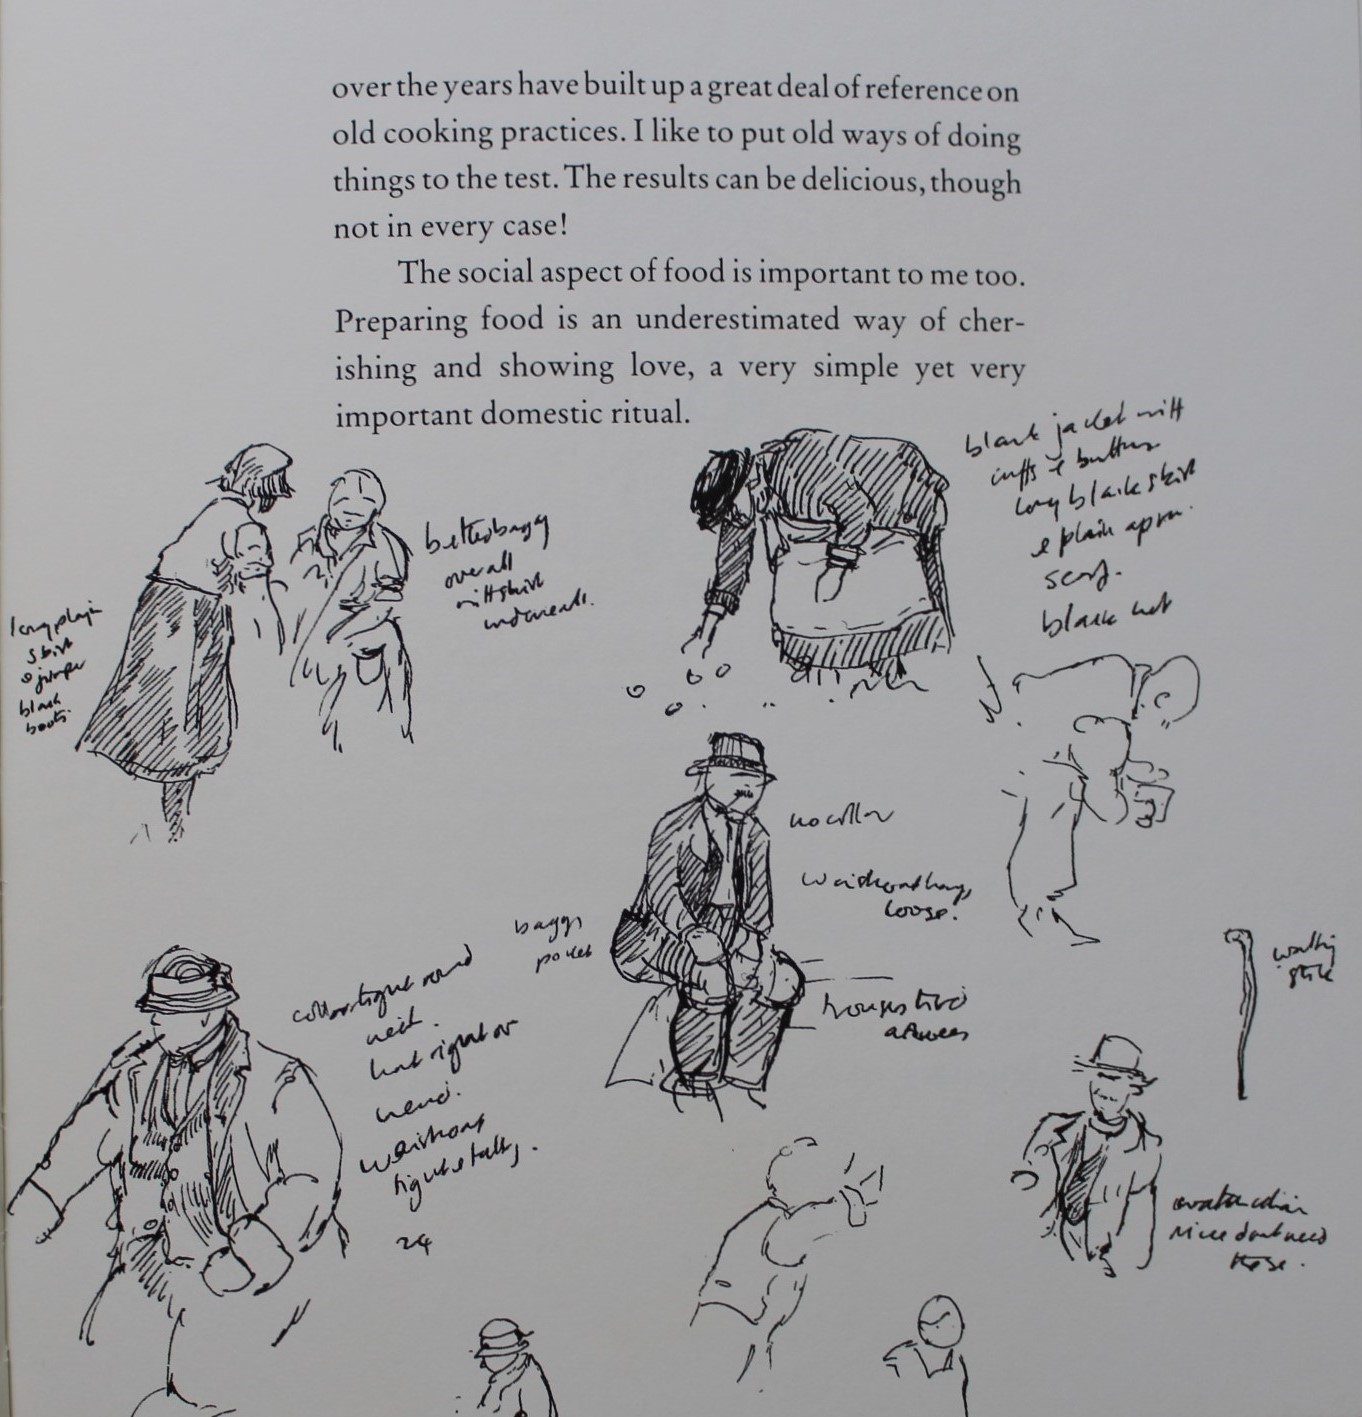 over the years have built up a great deal of reference on
old cooking practices. I like to put old ways of doing
things to the test. The results can be delicious, though
not in every case!
The social aspect of food is important to me too.
Preparing food is an underestimated way of cher-
ishing and showing love, a very simple yet very
important domestic ritual.
black jacket with
cuffs & buttons
long black skirt
& plain apron.
scarf.
black hat
belted baggy
overall
with skirt
underneath.
long plain
skirt
& jumper
black
boots.
no collar
waistcoat hangs
loose.
baggy
pocket
trousers tied
at knees
walking
stick
collar tight round
neck.
hat tight on
head.
waistcoat
tight
24